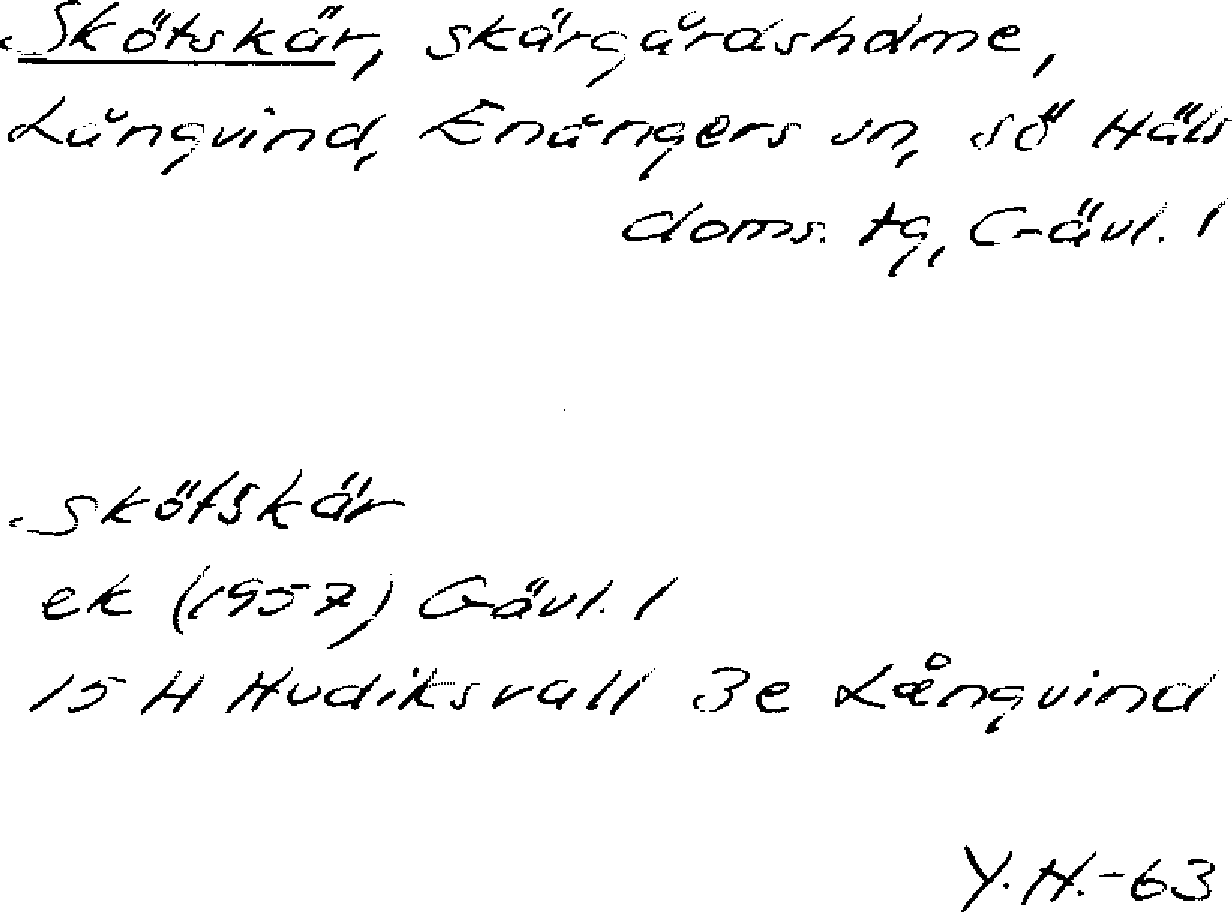 Skötskär, skärgårdshamne,
Långvind, Enångers sn, sö Häls
doms. tg, Gävl. l
Skötskär
ek (1957) Gävl. l
15 H Hudiksvall 3e Långvind
Y.H.-63